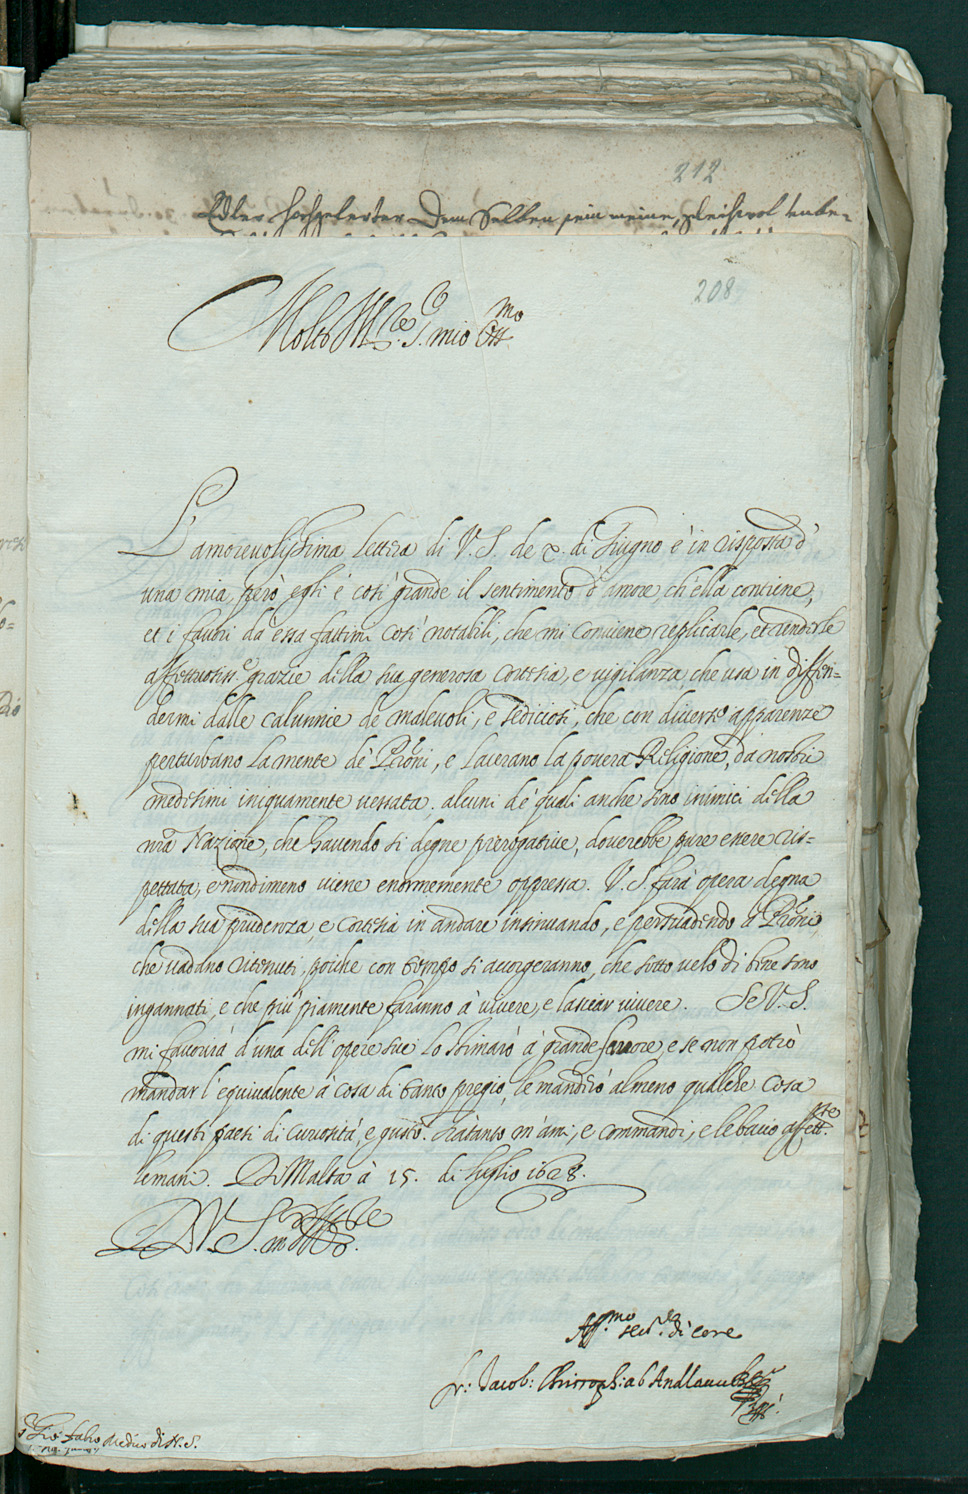 212
Edler hochgelerter Dem Selben sein meine
208
Molto Ill.re S.r mio Oss.mo
L'amorevolissima lettera di V. S. de x. di Giugno è in risposta d'
una mia, però egli è così grande il sentimento d'amore, ch'ella contiene,
et i favori da essa fattimi così notabili, che mi conviene replicarle, et renderle
affettuosiss.e grazie della sua generosa cortesia, e vigilanza, che usa in diffen-
dermi dalle calunnie de malevoli, e sediciosi, che con diverse apparenze
perturbano la mente de P.roni, e lacerano la povera Religione, da nostri
medesimi iniquamente vessata. alcuni de quali anche sono inimici della
nr̃a Nazione, che havendo sì degne prerogative, doverebbe pure essere ris-
pettata, e nondimeno viene enormemente oppressa. V. S. farà opera degna
della sua prudenza, e cortesia in andare insinuando, e persuadendo a P.roni,
che vadano ritenuti, poiche con tempo si accorgeranno, che sotto velo di bene sono
ingannati, e che più piamente faranno à vivere, e lasciar vivere. Se V. S.
mi favorirà d'una dell'opere sue lo stimarò à grande favore, e se non potrò
mandar l'equivalente à cosa di tanto pregio, le mandrò almeno qualche cosa
di questi paesi di curiosità, e gusto. Tratanto m'ami, e commandi, e le bacio affett.te
le mani. Di Malta à 15. di luglio 1628.
D V. S. m Ill.re
Aff.mo ser.re di core
fr: Jacob: Christoph: ab Andlauu
S. Gio: Fabro Medico di N. S.